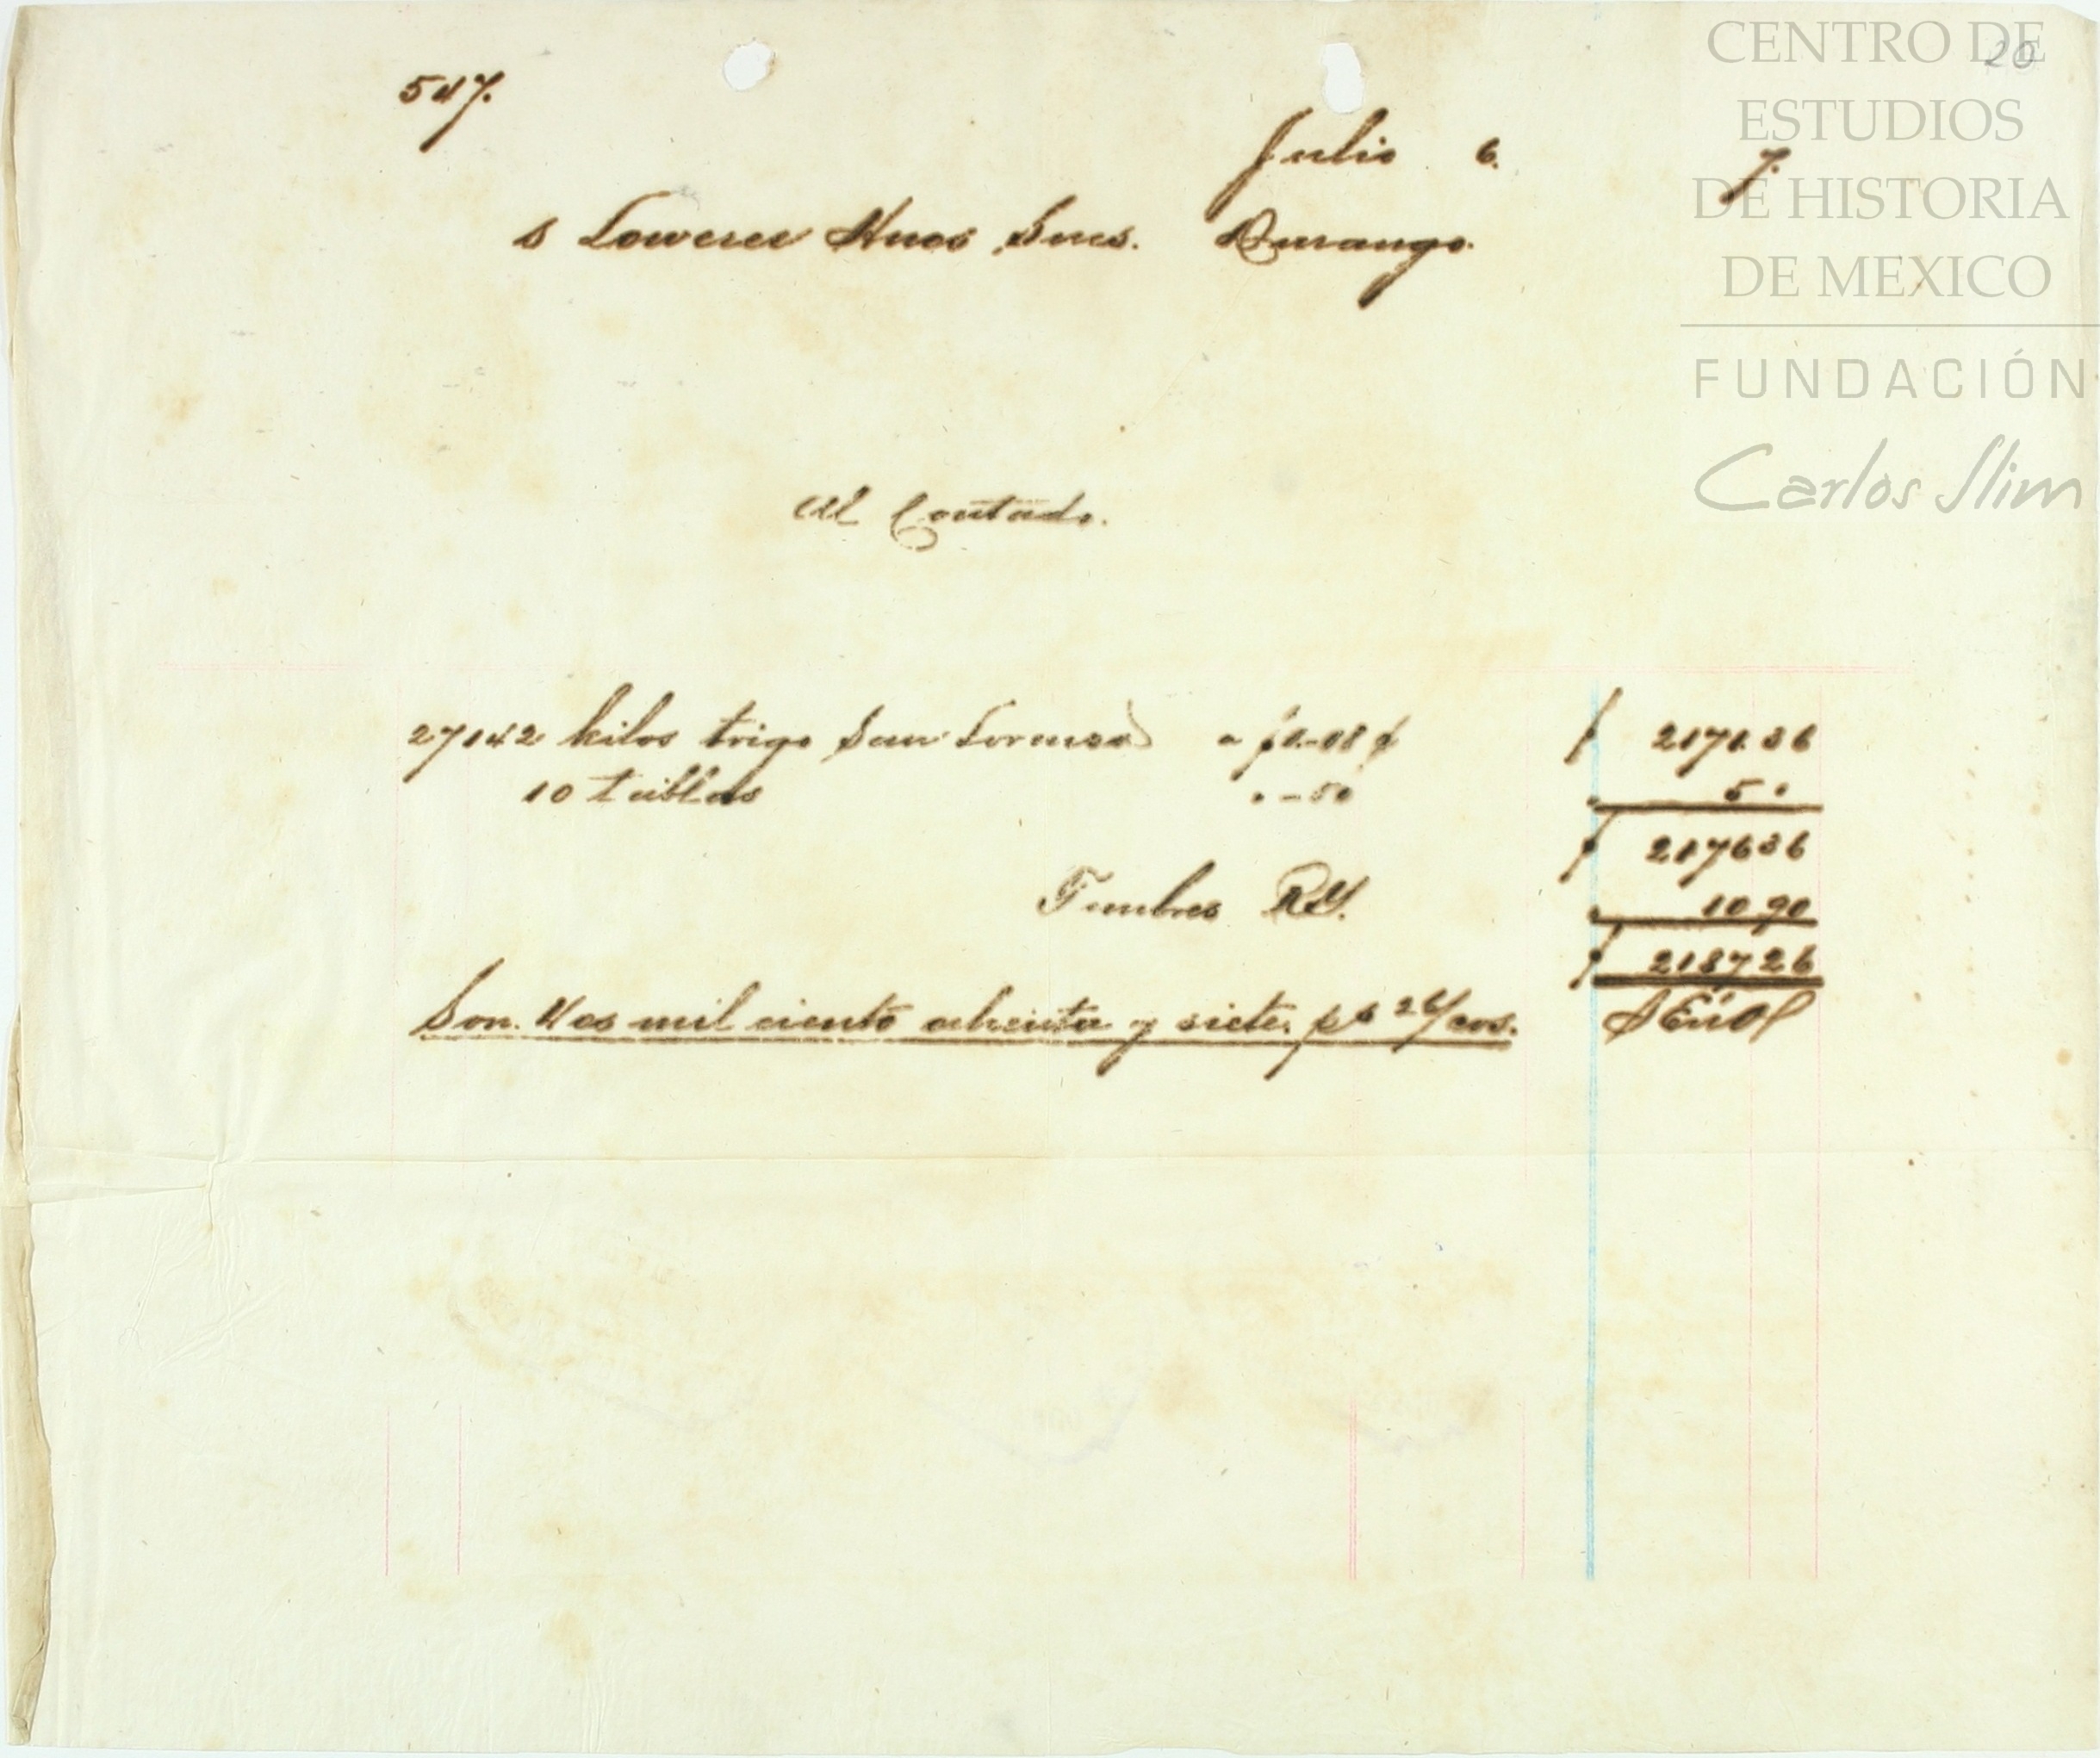 20
547.
Julio 6. 7.
s Loweree Hnos Sucs. Durango.
Al Contado.
27142 kilos trigo San Lorenzo a $0.08 ¢ $ 2171 36
10 tablas " -50 " 5 "
$ 2176 36
Timbres RY. " 10 90
$ 2187 26
Son. Dos mil ciento ochenta y siete. ps 26/cvs.
S E ú O
CENTRO DE
ESTUDIOS
DE HISTORIA
DE MEXICO
FUNDACIÓN
Carlos Slim